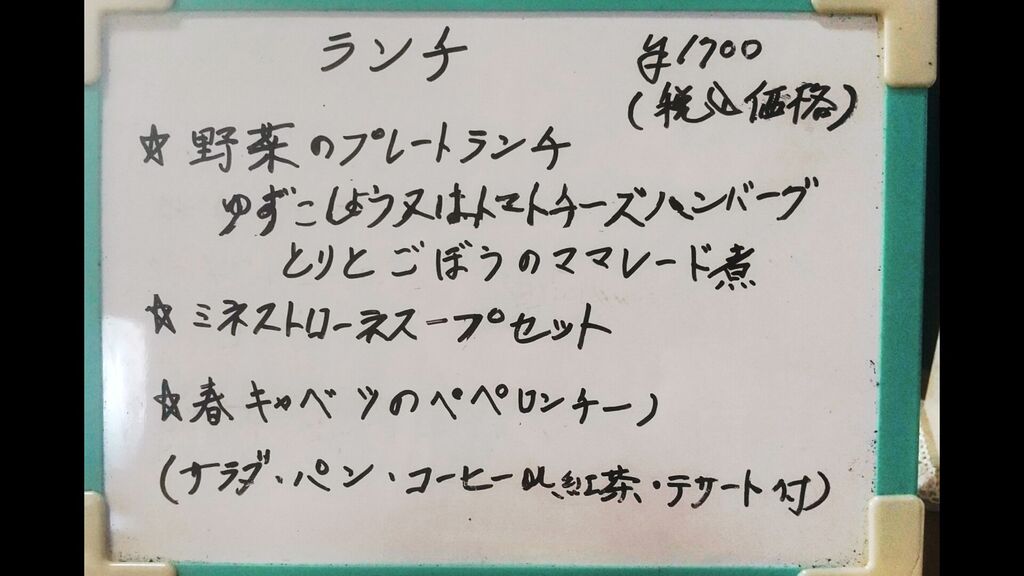 ランチ ¥1700
(税込価格)
☆野菜のプレートランチ
ゆずこしょう又はトマトチーズハンバーグ
とりとごぼうのママレード煮
☆ミネストローネスープセット
☆春キャベツのペペロンチーノ
(サラダ・パン・コーヒーor紅茶・デザート付)